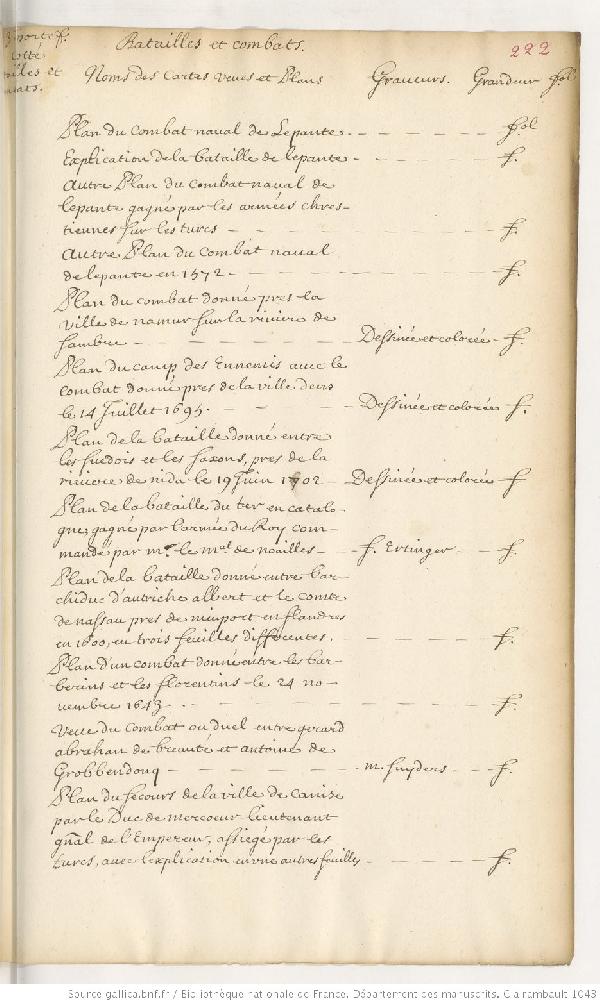 Batailles et combats.
222
Noms des Cartes veues et Plans Graveurs. Grandeur fol
Plan du Combat naval de Lepante. fol
Explication de la bataille de lepante. f.
Autre Plan du Combat naval de
lepante gagné par les armées chres-
tiennes sur les turcs f.
Autre Plan du Combat naval
de lepante en 1572. f.
Plan du combat donné pres la
ville de namur sur la riviere de
sambre Dessinée et colorée f.
Plan du camp des Ennemis avec le
combat donné pres de la ville
le 14 Juillet 1695. Dessinée et colorée f.
Plan de la bataille donné entre
les suedois et les saxons, pres de la
riviere de nida le 19 Juin 1702 Dessinée et colorée f
Plan de la bataille du ter en catalo-
gne, gagné par l'armée du Roy com-
mandé par mr. le mal. de noailles f. Ertinger f.
Plan de la bataille donné entre l'ar-
chiduc d'autriche albert et le comte
de nassau pres de nieuport en flandres
en 1600, en trois feuilles differentes. f.
Plan d'un combat donné entre les bar-
berins et les florentins le 24 no-
vembre 1643. f.
Veue du Combat ou duel entre gerard
abraham de breauté et antoine de
Grobbendonq m. snyders f.
Plan du secours de la ville de Canise
par le Duc de mercoeur lieutenant
gñal de l'Empereur, assiegé par les
turcs, avec l'explication autres feuilles f.
Source gallica.bnf.fr / Bibliothèque nationale de France. Département des manuscrits. Clairambault 1043